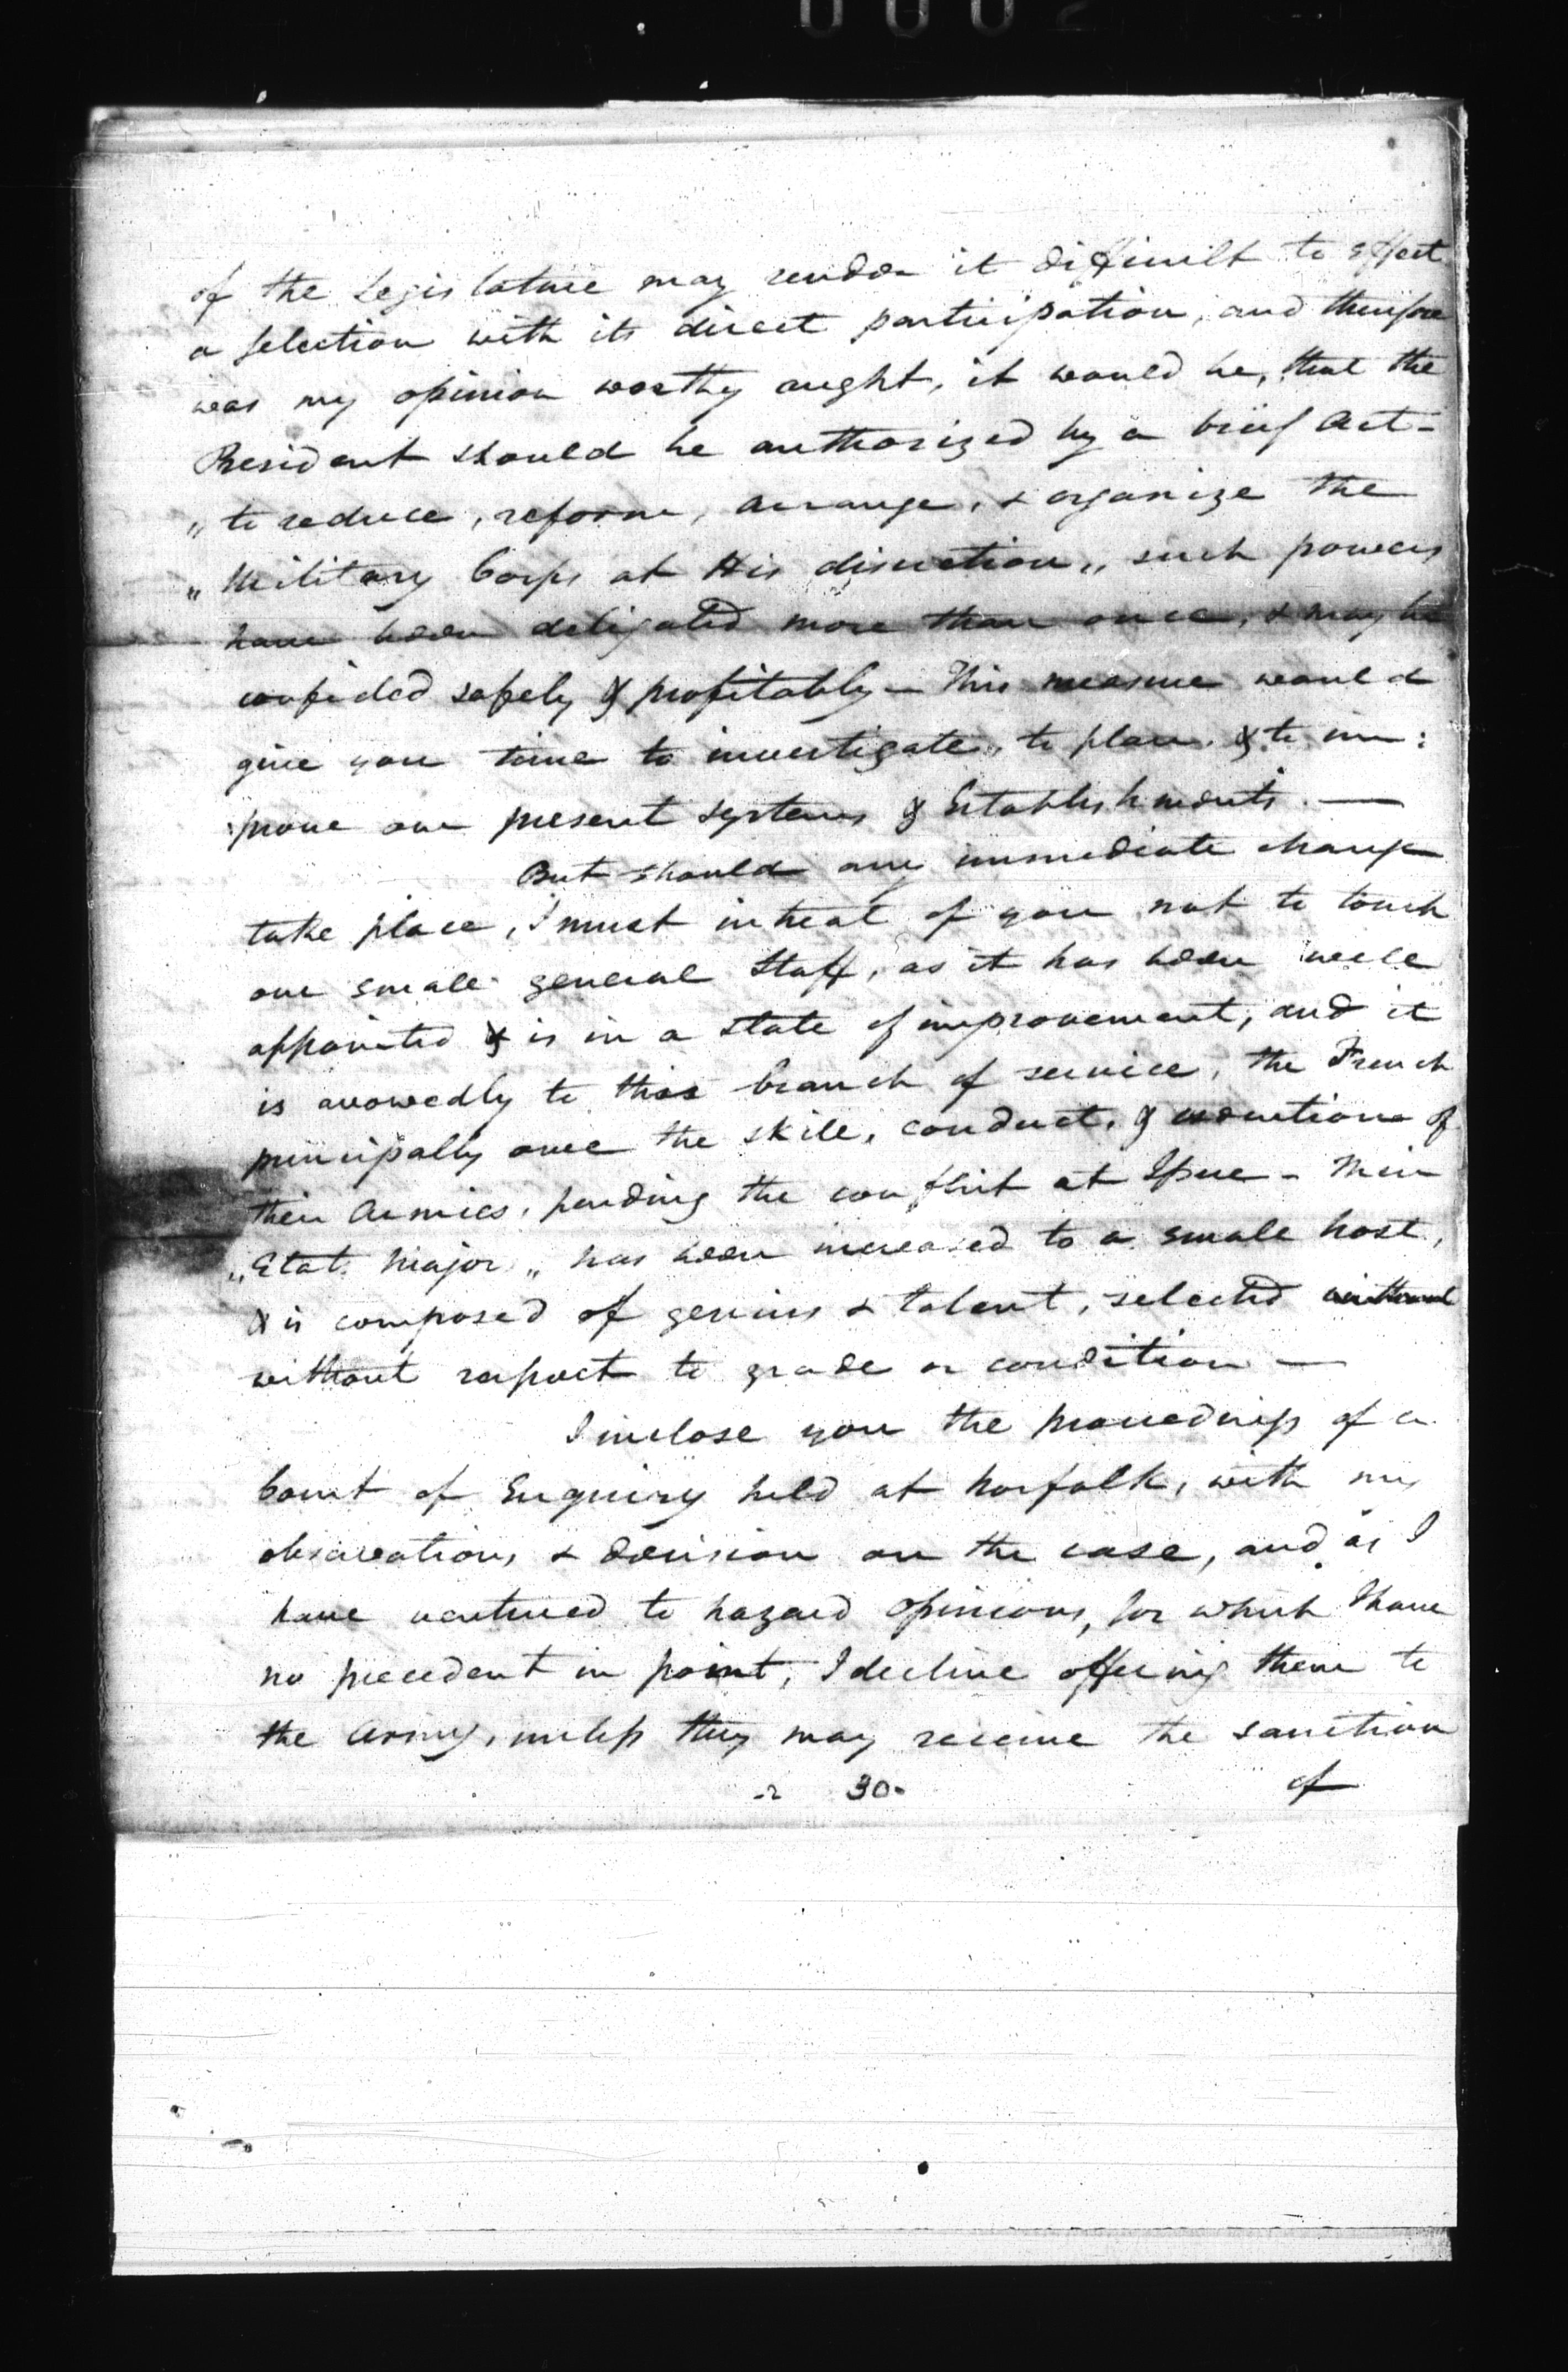 0002
of the Legislature may render it difficult to effect
a selection with its direct participation, and therefore
was my opinion worthy aught, it would be, that the
President should be authorized by a brief Act -
"to reduce, reform, arrange, & organize the
"Military Corps at His discretion" such powers
have been deligated more than once, & may be
confided safely & profitably — This measure would
give you time to investigate, to plan, & to im:
:prove our present systems & Establishments. —
But should any immediate change
take place, I must intreat of you not to touch
our small general Staff, as it has been well
appointed & is in a state of improvement, and it
is avowedly to this branch of service, the French
principally owe the skill, conduct, & executions of
their Armies, pending the conflict at Issue - Their
"Etat Major" has been increased to a small host,
& is composed of genius & talent, selected
without respect to grade or condition —
I inclose you the proceedings of a
Court of Enquiry held at Norfolk, with my
observations & decision on the case, and as I
have ventured to hazard opinions, for which I have
no precedent in point, I decline offering them to
the Army, unless they may receive the sanction
30. of